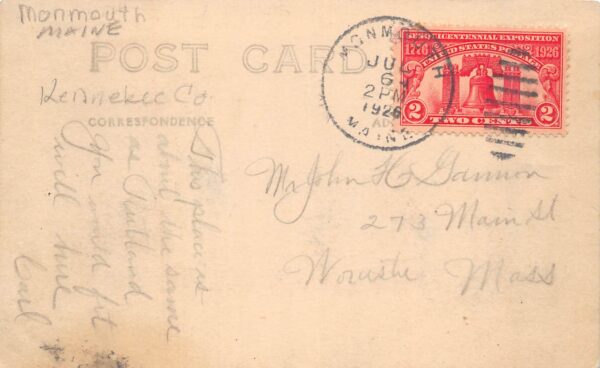 Monmouth
MAINE
POST CARD
Kennebec Co.
CORRESPONDENCE
This place is
about the same
as Rutland
You would fit
will here
Carl
MONMOUTH
JUL
6
2 PM
1926
MAINE
SESQUICENTENNIAL EXPOSITION
1776 UNITED STATES POSTAGE 1926
2 TWO CENTS 2
Mr John H Gannon
273 Main St
Worcester Mass